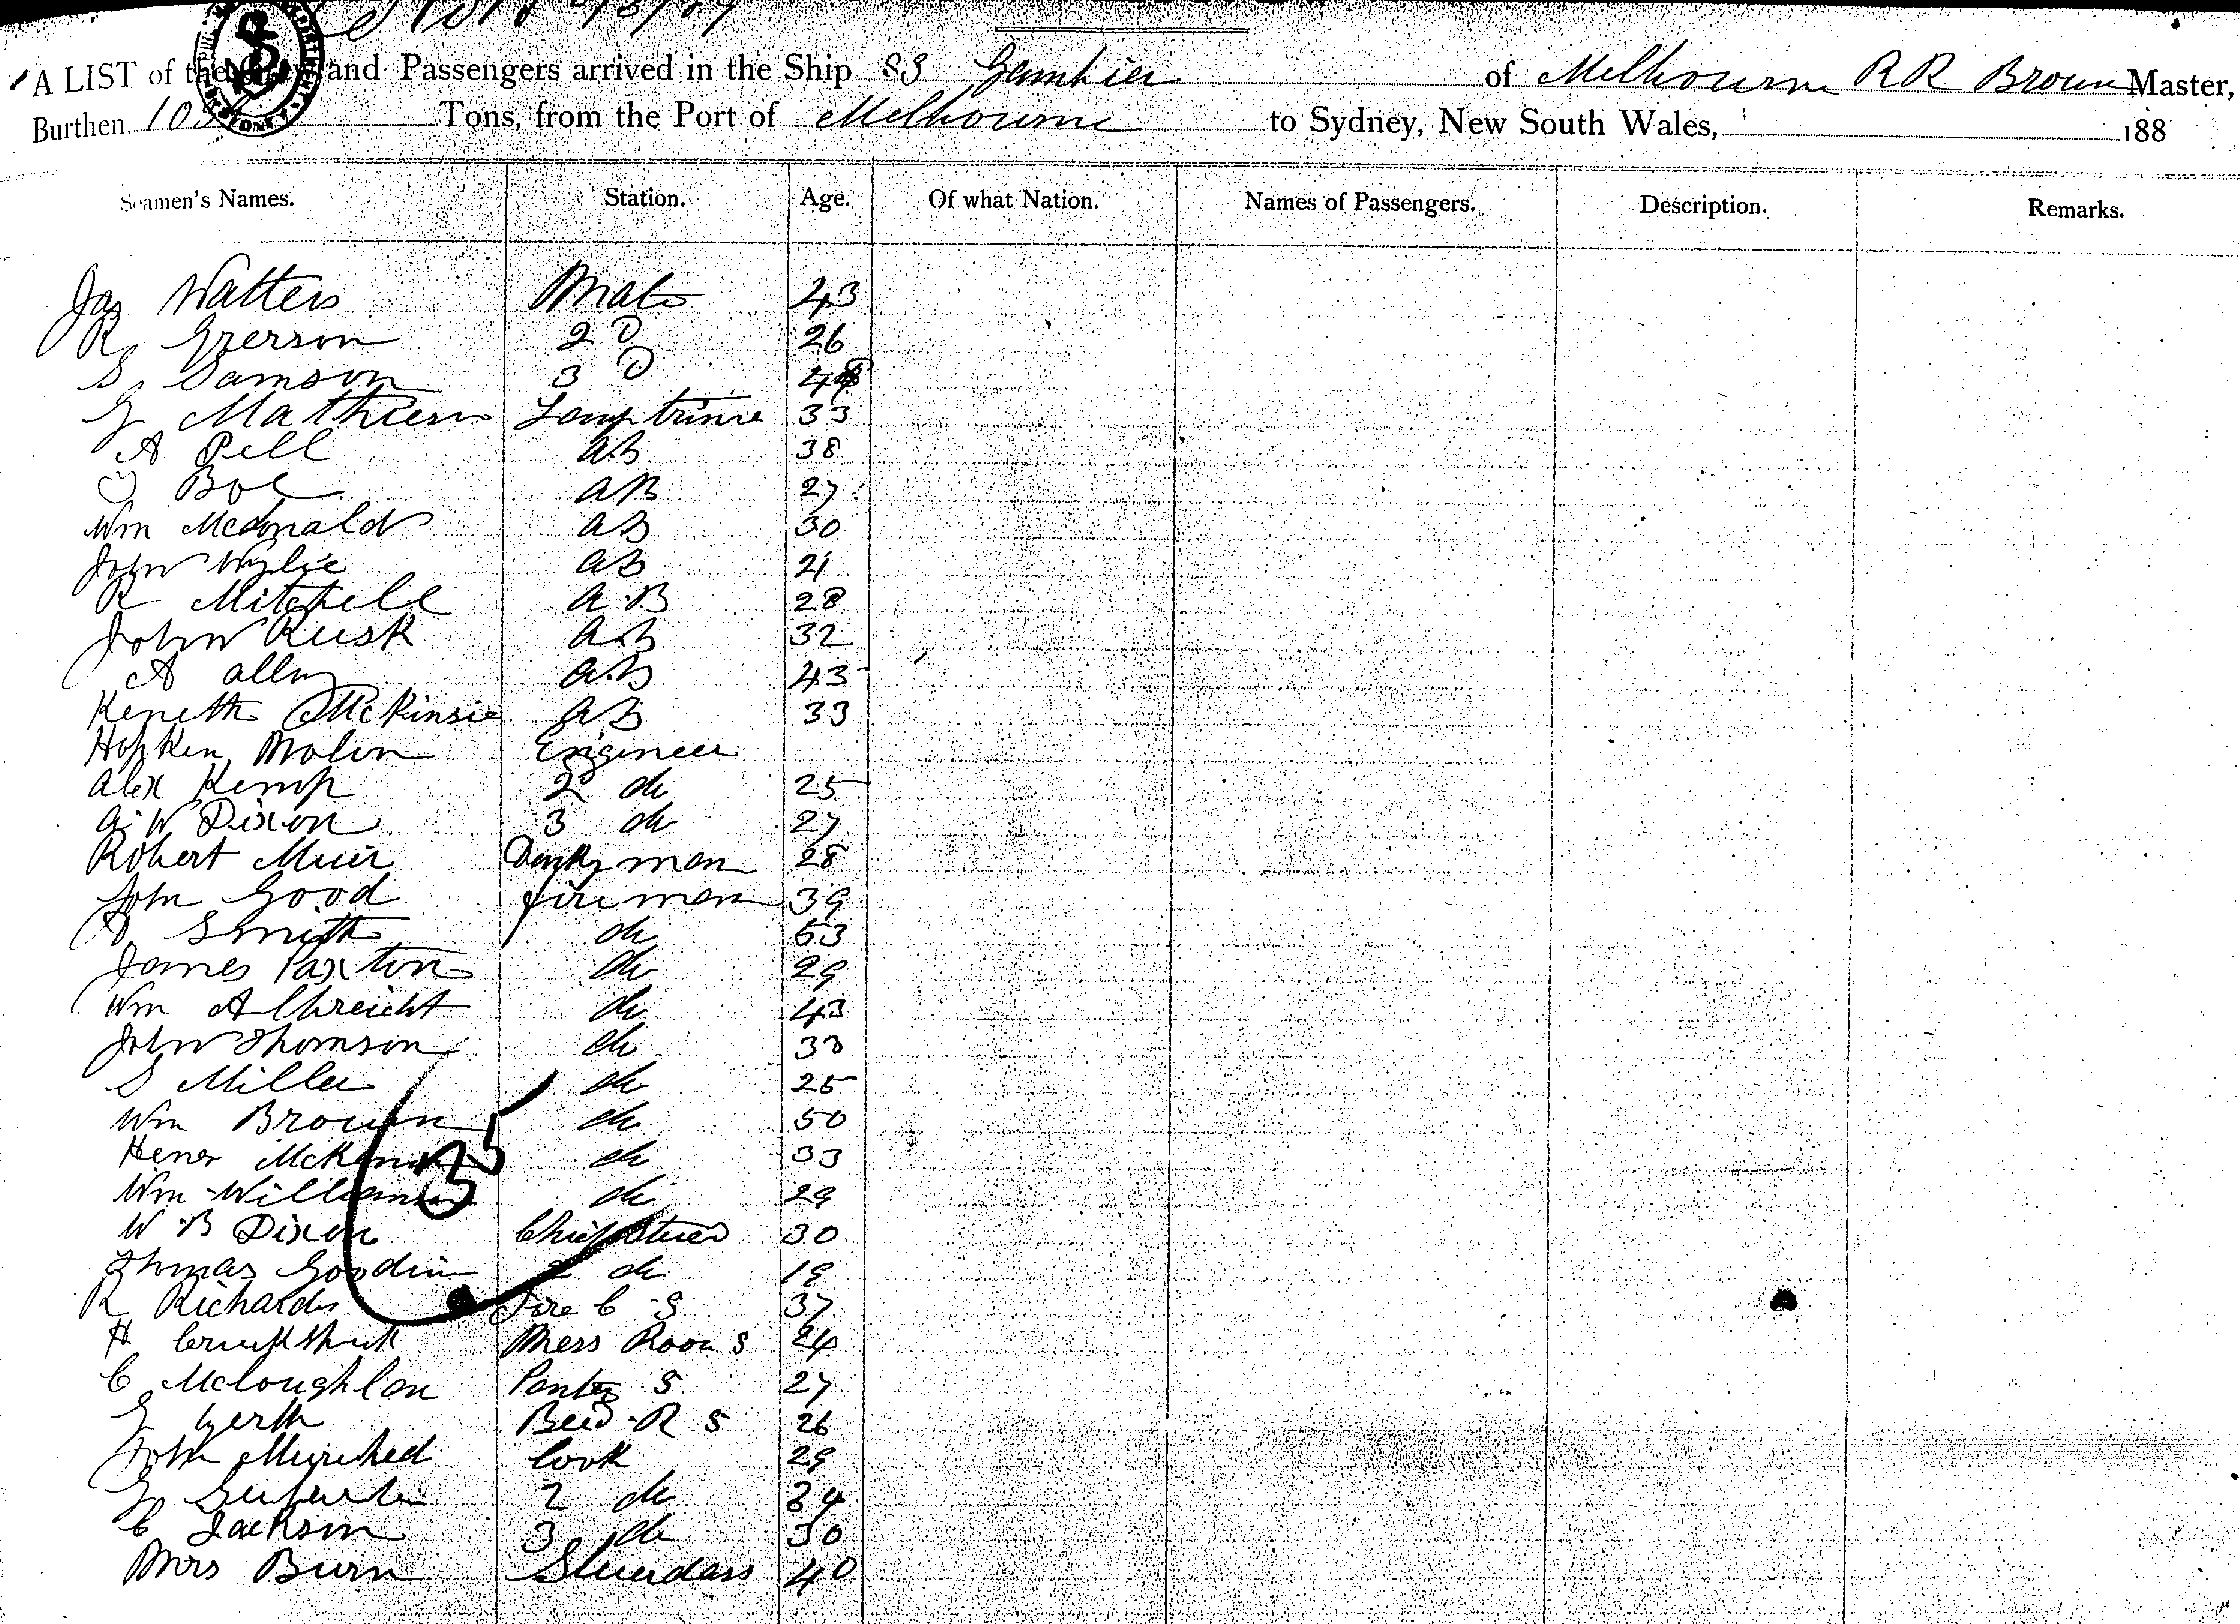 A LIST of the and Passengers arrived in the Ship SS Gambier of Melbourne RR Brown Master,
Burthen Tons, from the Port of Melbourne to Sydney, New South Wales, 188
Seamen's Names. Station. Age. Of what Nation. Names of Passengers. Description. Remarks.
Jas Watters Mate 43
R Grerson 2 D 26
S. Samson 3 D
G Mathieson Lamp trime 33
A Pell AB 38
Boe AB 27
Wm Mcdonald AB 30
John Wylie AB 21
R Mitchell A.B 28
John Rusk AB 32
A allen AB 43
Keneth McKinsie AB 33
Hopken Molin Engineer
Alex Kemp 2 do 25
G. W Dixon 3 do 27
Robert Muir Donky man 28
John Good fire man 39
Smith do 53
James Paxton do 29
Wm Albreicht do 43
John Thomson do 33
S Miller do 25
Wm Brown do 50
do 33
Wm Williams do 29
W B Dixon Chief Stued 30
Thomas Goodin 2 do 19
R Richards Fore C S 37
H Cruickshank Mess Room S 24
C Mcloughlan Pantry S 27
G Gerth Bed R S 26
John Muirhed Cook 29
2 do 34
C Jackson 3 do 30
Mrs Burn Stuerdass 40
35